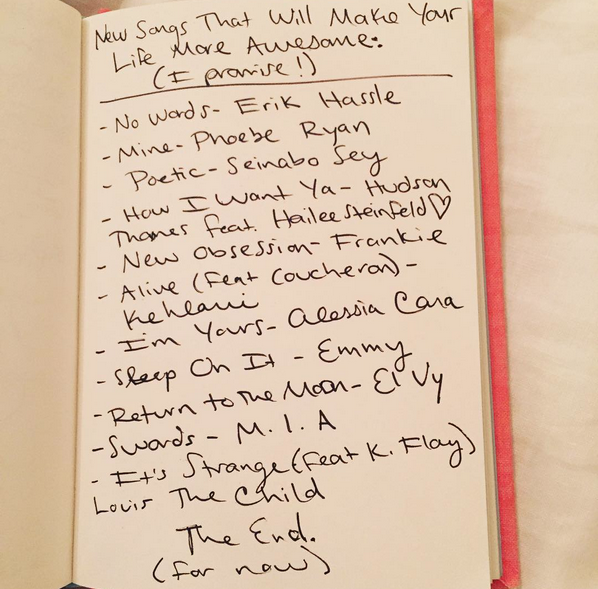 New Songs That Will Make Your
Life More Awesome:
(I promise!)
- No Words- Erik Hassle
- Mine- Phoebe Ryan
- Poetic- Seinabo Sey
- How I Want Ya- Hudson
Thames feat. Hailee Steinfeld♡
- New Obsession- Frankie
- Alive (Feat Coucheron)-
Kehlani
- I'm Yours- Alessia Cara
- Sleep On It - Emmy
- Return to the Moon- El Vy
- Swords - M.I.A
- It's Strange (Feat K. Flay)
Louis The Child
The End.
(for now)